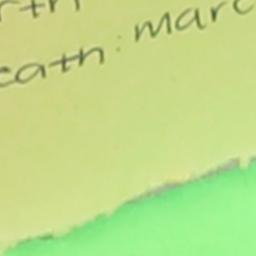 rth
eath: marc